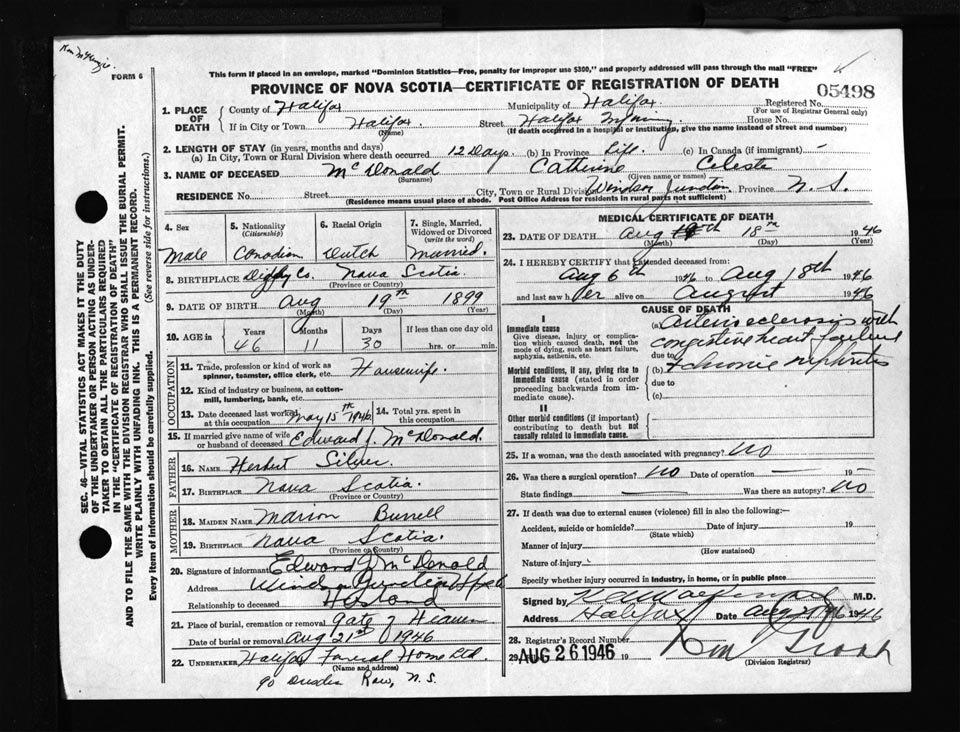 FORM 6
This form if placed in an envelope, marked "Dominion Statistics—Free, penalty for improper use $300," and properly addressed will pass through the mail "FREE"
PROVINCE OF NOVA SCOTIA—CERTIFICATE OF REGISTRATION OF DEATH
05498
1. PLACE OF DEATH
County of Halifax Municipality of Halifax. Registered No.
(For use of Registrar General only)
If in City or Town Halifax. Street Halifax House No.
(Name) (If death occurred in a hospital or institution, give the name instead of street and number)
2. LENGTH OF STAY (in years, months and days)
(a) In City, Town or Rural Division where death occurred 12 Days. (b) In Province Life. (c) In Canada (if immigrant) -
3. NAME OF DECEASED McDonald Catherine Celeste
(Surname) (Given name or names)
RESIDENCE No. Street City, Town or Rural Division Windsor Junction Province N. S.
(Residence means usual place of abode. Post Office Address for residents in rural parts not sufficient)
4. Sex 5. Nationality (Citizenship) 6. Racial Origin 7. Single, Married, Widowed or Divorced (write the word)
Male Canadian Dutch Married.
8. BIRTHPLACE Digby Co. Nova Scotia.
(Province or Country)
9. DATE OF BIRTH Aug 19th 1899
(Month) (Day) (Year)
10. AGE in Years Months Days If less than one day old
46 11 30 hrs. or min.
OCCUPATION
11. Trade, profession or kind of work as spinner, teamster, office clerk, etc. Housewife.
12. Kind of industry or business, as cotton-mill, lumbering, bank, etc.
13. Date deceased last worked at this occupation May 15th 1946 14. Total yrs. spent in this occupation
15. If married give name of wife or husband of deceased Edward J. McDonald.
FATHER
16. Name Herbert Silver.
17. Birthplace Nova Scotia.
(Province or Country)
MOTHER
18. Maiden Name Marion Burrell
19. Birthplace Nova Scotia.
(Province or Country)
20. Signature of informant Edward J McDonald
Address Windsor Junction Hfx Co
Relationship to deceased Husband
21. Place of burial, cremation or removal Gate of Heaven
Date of burial or removal Aug 21st 1946
22. UNDERTAKER Halifax Funeral Home Ltd.
(Name and address)
90 Row, N. S.
MEDICAL CERTIFICATE OF DEATH
23. DATE OF DEATH Aug 18th 1946
(Month) (Day)
24. I HEREBY CERTIFY that I attended deceased from:
Aug 6th 1946 to Aug 18th 1946
and last saw her alive on August 1946
CAUSE OF DEATH
I
Immediate cause
Give disease, injury or complication which caused death, not the mode of dying, such as heart failure, asphyxia, asthenia, etc.
(a) Arteriosclerosis with
congestive heart failure
due to
Morbid conditions, if any, giving rise to immediate cause (stated in order proceeding backwards from immediate cause).
(b) & chronic nephritis
due to
(c)
II
Other morbid conditions (if important) contributing to death but not causally related to immediate cause.
25. If a woman, was the death associated with pregnancy? NO
26. Was there a surgical operation? NO Date of operation — 19 —
State findings — Was there an autopsy? NO
27. If death was due to external causes (violence) fill in also the following:—
Accident, suicide or homicide? Date of injury 19
(State which)
Manner of injury
(How sustained)
Nature of injury
Specify whether injury occurred in industry, in home, or in public place
Signed by M.D.
Address Halifax Date Aug 1946
28. Registrar's Record Number
29. AUG 26 1946 19
(Division Registrar)
SEC. 46—VITAL STATISTICS ACT MAKES IT THE DUTY
OF THE UNDERTAKER OR PERSON ACTING AS UNDER-
TAKER TO OBTAIN ALL THE PARTICULARS REQUIRED
IN THE "CERTIFICATE OF REGISTRATION OF DEATH"
AND TO FILE THE SAME WITH THE DIVISION REGISTRAR WHO SHALL ISSUE THE BURIAL PERMIT.
WRITE PLAINLY WITH UNFADING INK. THIS IS A PERMANENT RECORD.
Every item of information should be carefully supplied. (See reverse side for instructions.)